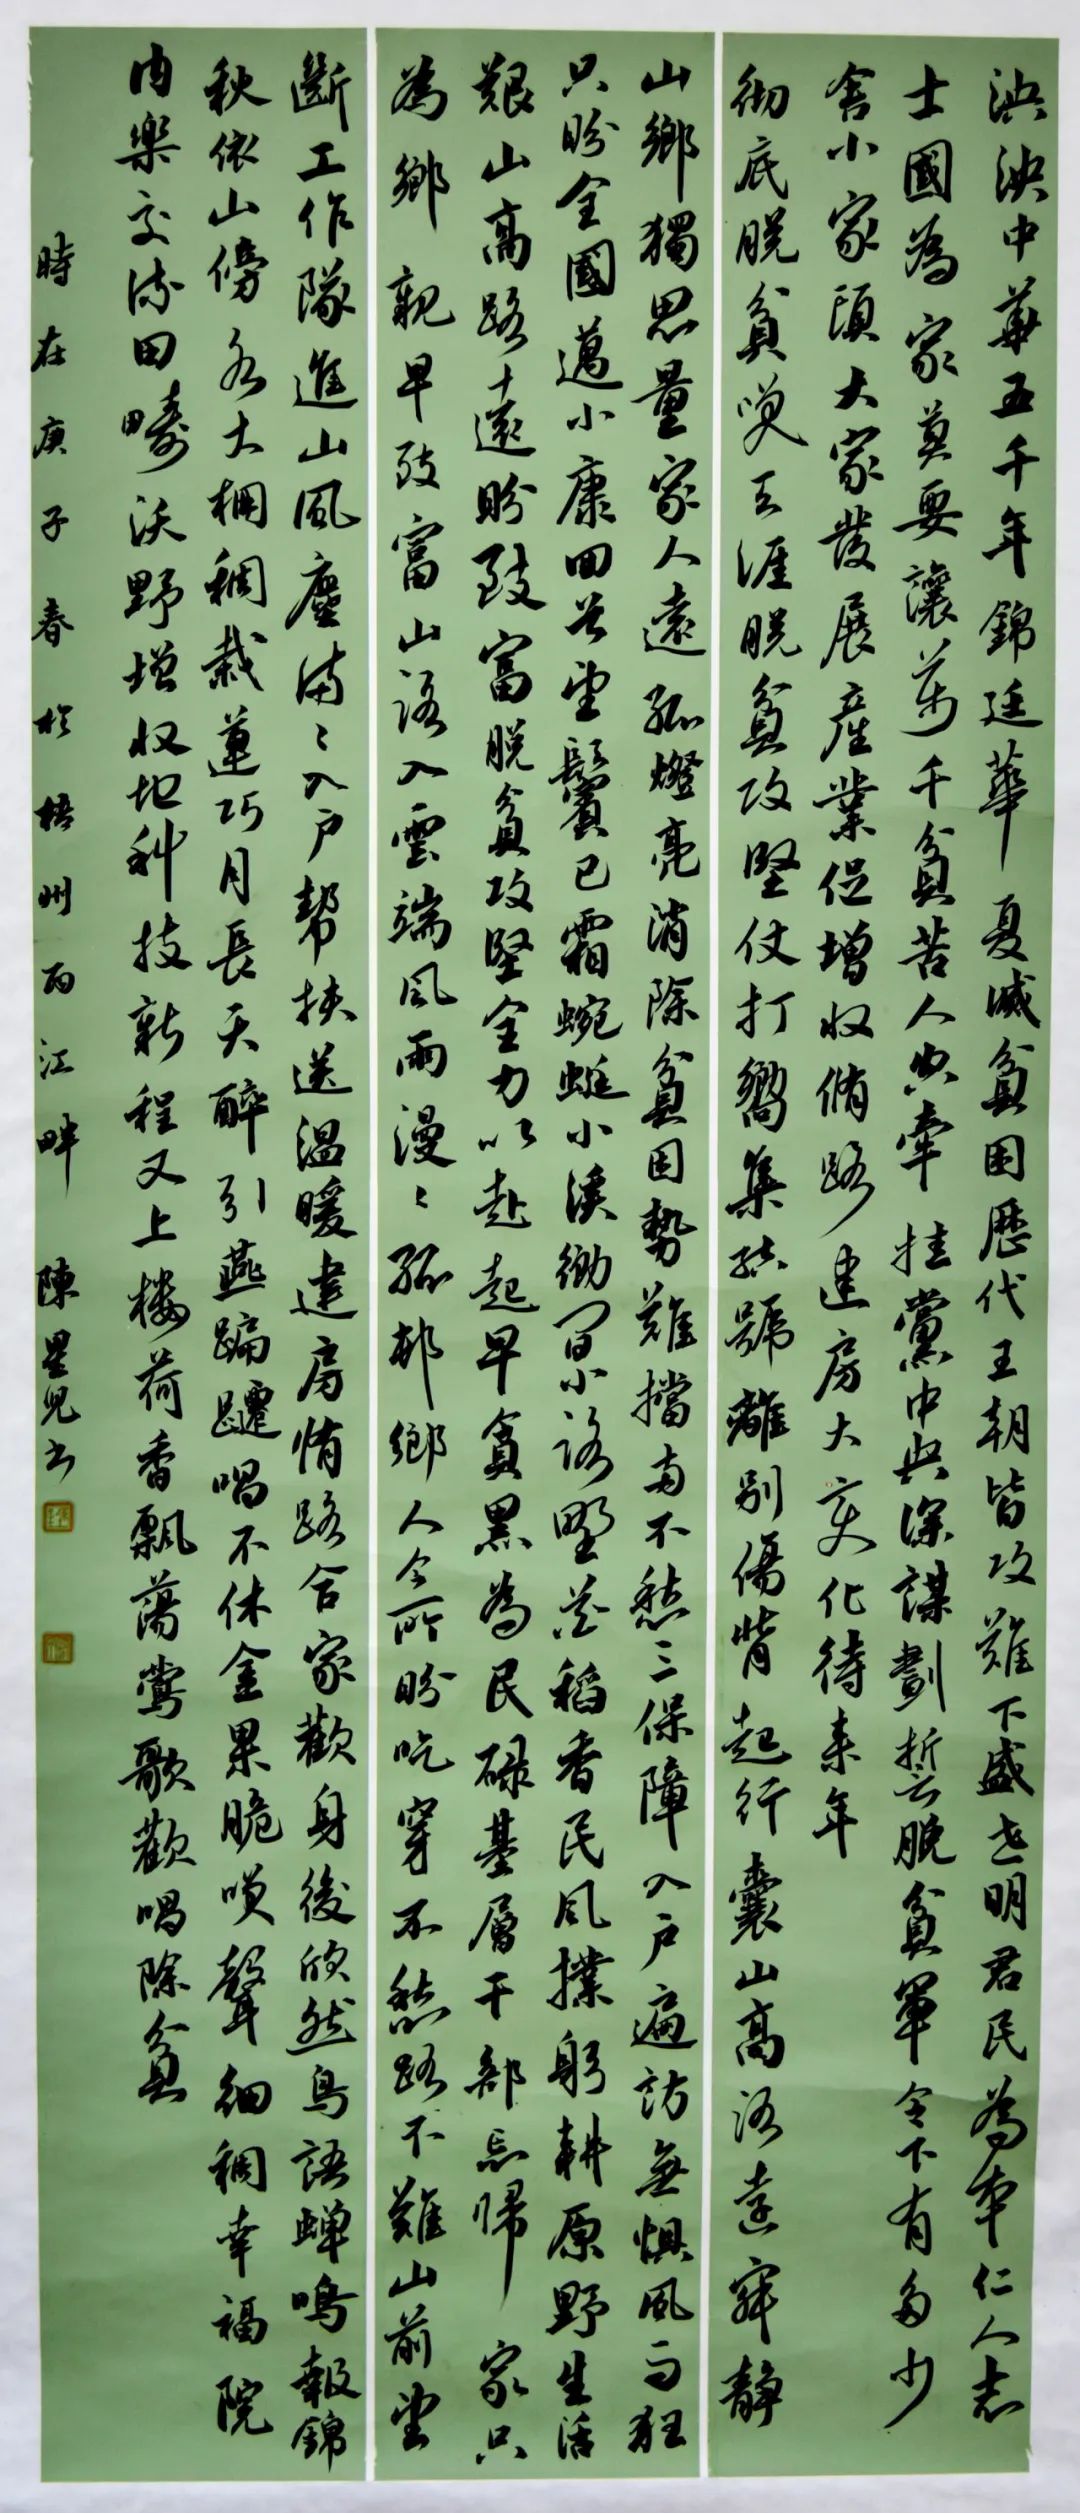 泱泱中華五千年錦延華夏減貧困歷代王朝皆攻難下盛世明君民為本仁人志
士國為家莫要讓萬千貧苦人出牽掛黨中央深謀劃誓脫貧軍令下有多少
舍小家顧大家發展產業促增收修路建房大变化待来年
彻底脱貧哭天涯脱貧攻堅仗打響集結號離別傷背起行囊山高路遠寂静
山鄉獨思量家人遠孤燈亮消除貧困勢難擋南不愁三保障入户遍訪無惧風雨狂
只盼全國邁小康回首望鬢已霜蜿蜒小溪鄉间小路野花稻香民風樸躬耕原野生活
艱山高路遠盼致富脱貧攻堅全力以赴起早貪黑為民碌基層干部忘歸家只
為鄉親早致富山路入雲端風雨漫〻孤村鄉人今所盼吃穿不愁路不難山前望
斷工作隊進山風塵满〻入户幫扶送溫暖建房修路合家歡身後欣然鳥語蟬鳴報錦
秋依山傍水大棚稠栽蓮巧月長天醉引燕蹁躚唱不休金果脆嗩聲细稠幸福院
内樂交流田疇沃野增收地科技新程又上樓荷香飄蕩鶯歌歡唱除貧
時在庚子春於梧州西江畔 陳星兒书